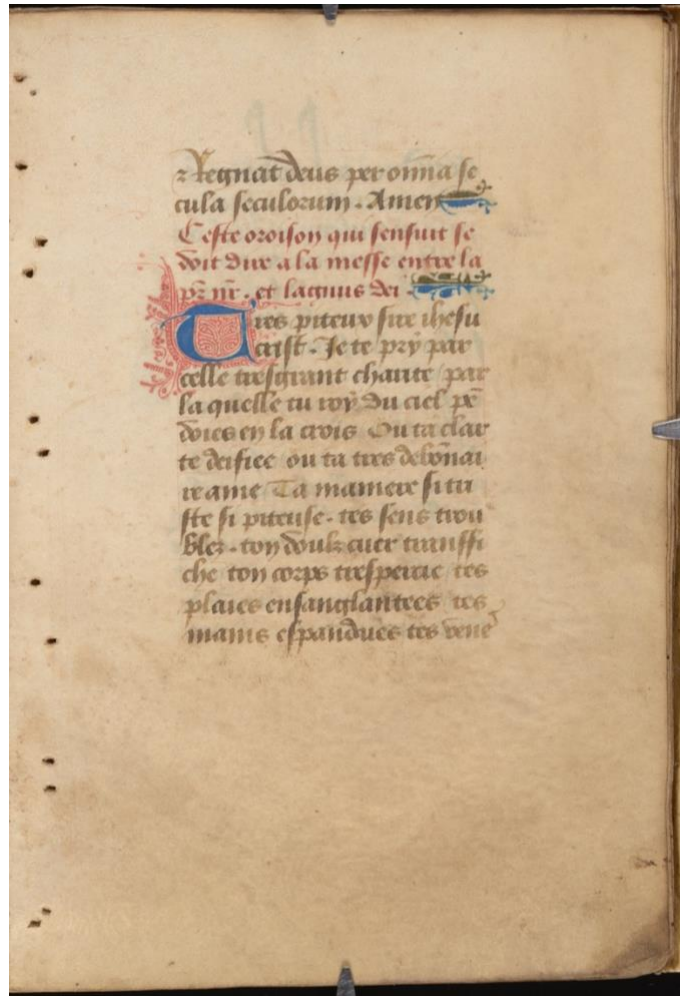 ⁊ Regnat deus per om̄a se
cula seculorum. Amen
Ceste oroison qui sensuit se
doit dire a la messe entre la
pr̄ nr̄e. et lagnus dei
Tres piteux sire ihesu
crist. Je te pry par
celle tresgrant charite par
la quelle tu roy du ciel pē
doies en la crois Ou ta clar
te deifiee ou ta tres debōnai
re ame Ta maniere si tri
ste si piteuse. tes sens trou
blez. ton doulz cuer transfi
che ton corps trespercie tes
plaies ensanglantees tes
mains espandues tes vene